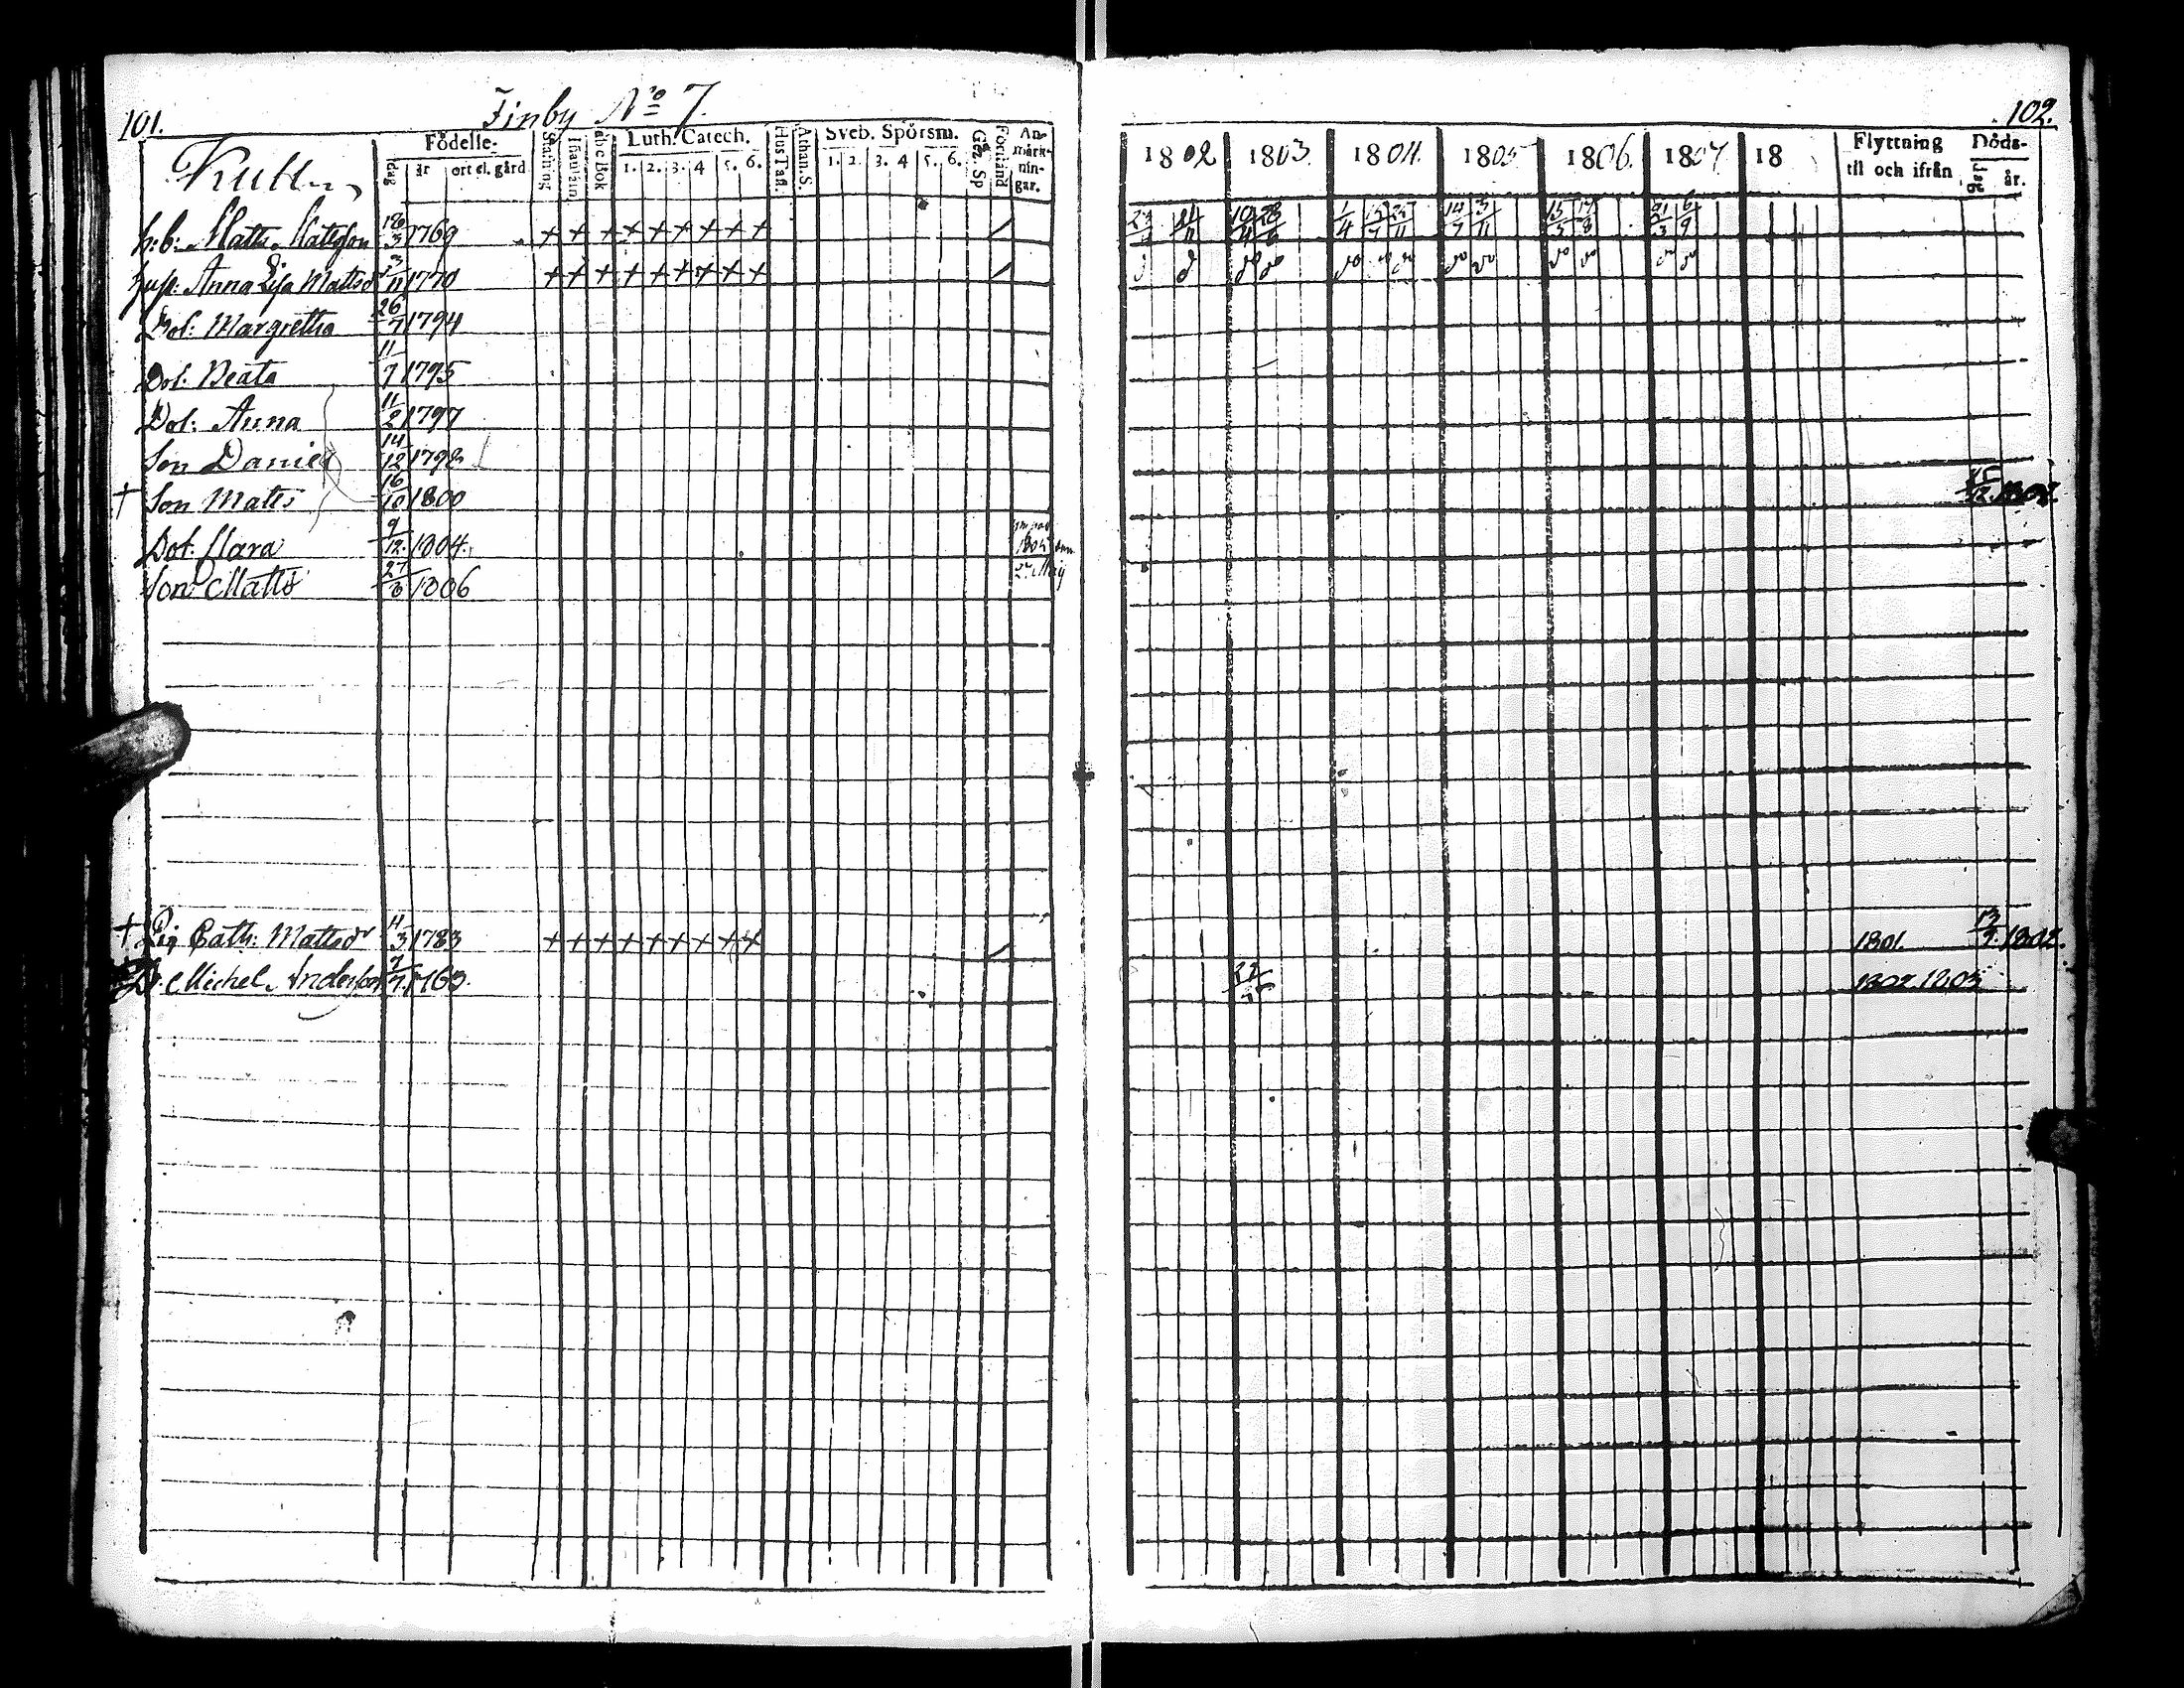 101.
Finby No 7.
Födelse-
dag år ort el. gård
Stafning
Innanläsn
Luth. Catech.
1. 2. 3. 4 5. 6.
Hus Tafl.
Athan. S.
Sveb. Spörsm.
1. 2. 3. 4 5. 6.
Gez. Sp
Förstånd
An-
märk-
nin-
gar.
h:b: Matts Mattsson 18/3 1769 + + + + + + + + +
hust: Anna Lisa Mattsdr 3/11 1770 + + + + + + + + +
Dot: Margretha 26/7 1794
Dot: Beata 11/7 1795
Dot: Anna 11/2 1797
Son Daniel 14/12 1798
† Son Matts 16/10 1800
Dot. Clara 9/12. 1804.
Son Matts 27/8 1806
† Pig Cath: Mattsdr 11/3 1783 + + + + + + + + +
Dr. Michel Andersson 7/7 1763.
102.
1802 1803. 1804. 1805 1806. 1807 18
Flyttning
til och ifrån
Döds-
dag år.
10/4 28/6 1/4 15/7 25/11 14/7 3/11 15/3 17/8 21/3 6/9
do do do do do do do do do do do
15/12. 1802.
1801. 13/9. 1802.
1802. 1803